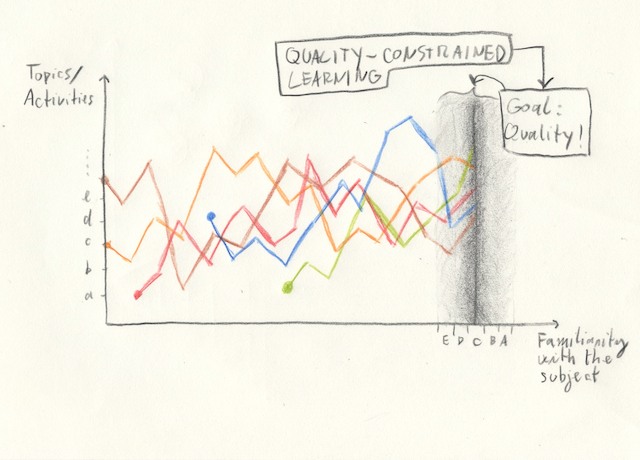 QUALITY-CONSTRAINED
LEARNING
Topics/
Activities
Goal:
Quality!
e
d
c
b
a
E D C B A
Familiarity
with the
subject